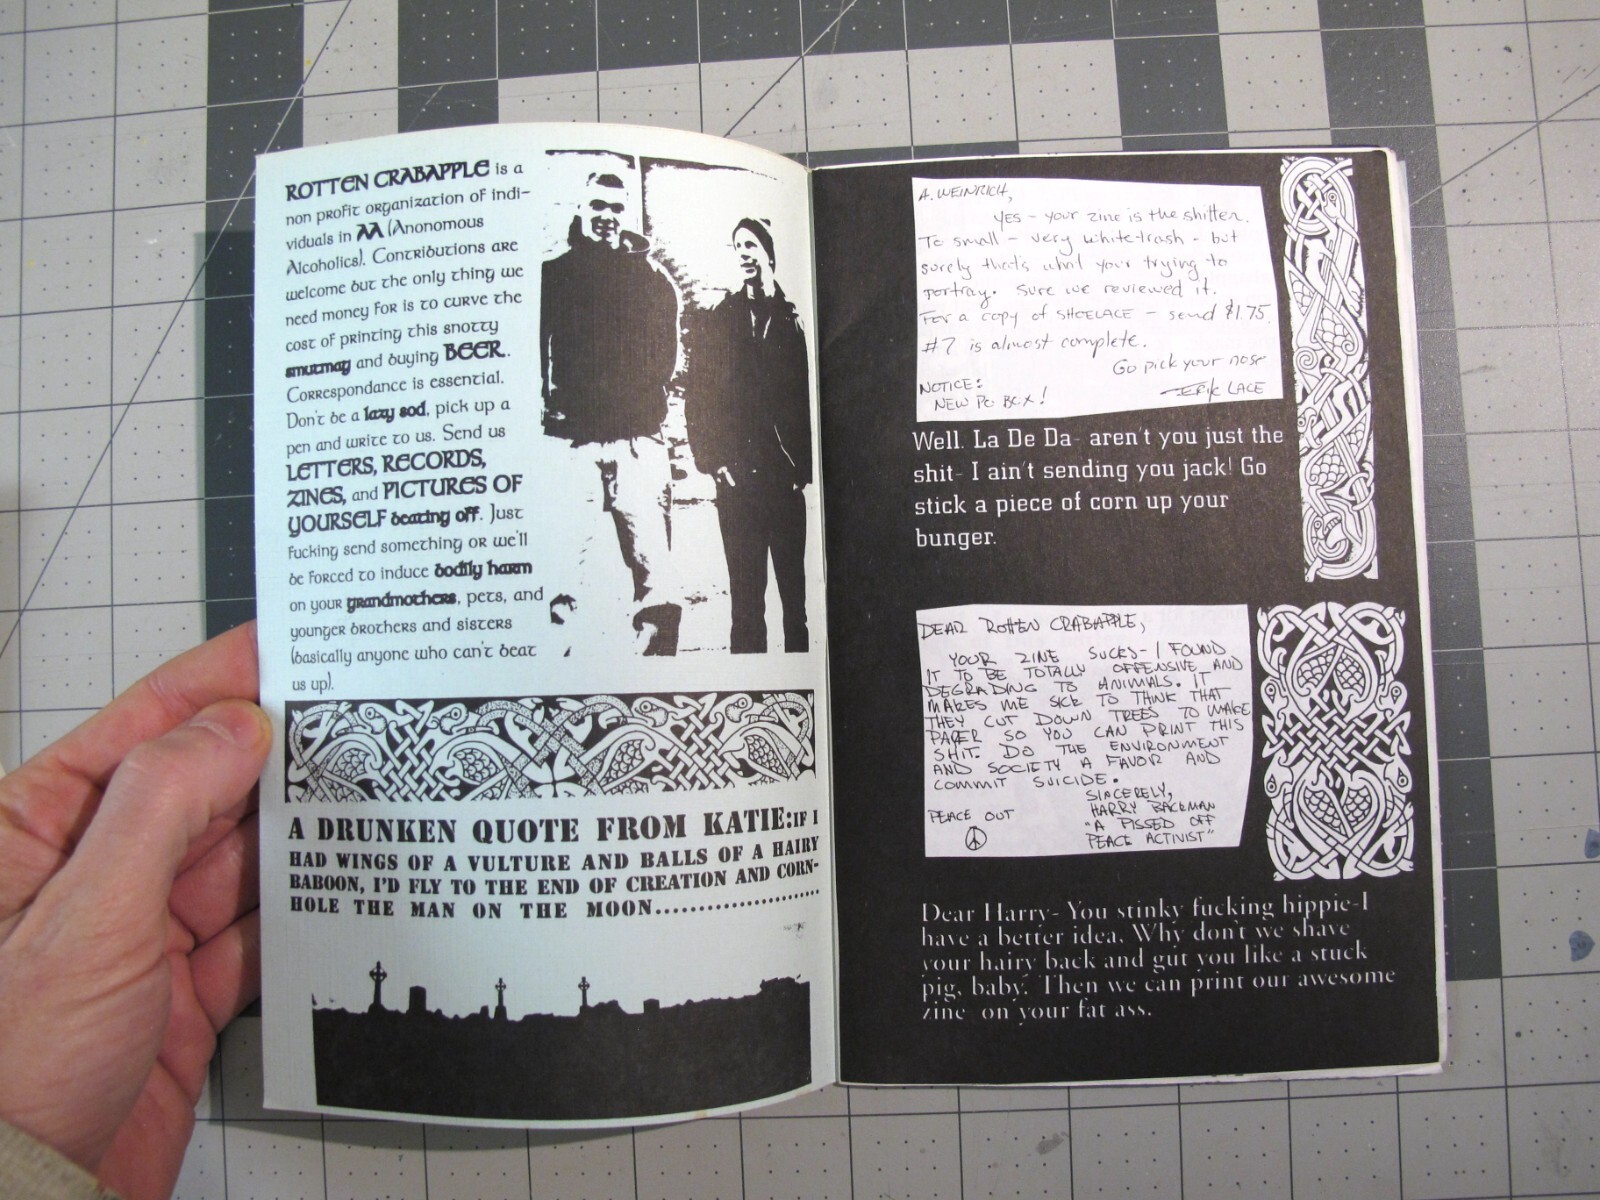 ROTTEN CRABAPPLE is a
non profit organization of indi-
viduals in AA (Anonomous
Alcoholics). Contributions are
welcome but the only thing we
need money for is to curve the
cost of printing this snotty
smutmag and buying BEER.
Correspondance is essential.
Don't be a lazy sod, pick up a
pen and write to us. Send us
LETTERS, RECORDS,
ZINES, and PICTURES OF
YOURSELF beating off. Just
fucking send something or we'll
be forced to induce bodily harm
on your grandmothers, pets, and
younger brothers and sisters
(basically anyone who can't beat
us up).
A DRUNKEN QUOTE FROM KATIE:IF I
HAD WINGS OF A VULTURE AND BALLS OF A HAIRY
BABOON, I'D FLY TO THE END OF CREATION AND CORN-
HOLE THE MAN ON THE MOON......................
A. WEINRICH,
YES - your zine is the shitter.
To small - very white-trash - but
surely that's what your trying to
portray. Sure we reviewed it.
For a copy of SHOELACE - send $1.75.
#7 is almost complete.
Go pick your nose
- Erik LACE
NOTICE:
NEW PO BOX!
Well. La De Da- aren't you just the
shit- I ain't sending you jack! Go
stick a piece of corn up your
bunger.
DEAR ROTTEN CRABAPPLE,
YOUR ZINE SUCKS- I FOUND
IT TO BE TOTALLY OFFENSIVE AND
DEGRADING TO ANIMALS. IT
MAKES ME SICK TO THINK THAT
THEY CUT DOWN TREES TO MAKE
PAPER SO YOU CAN PRINT THIS
SHIT. DO THE ENVIRONMENT
AND SOCIETY A FAVOR AND
COMMIT SUICIDE.
SINCERELY,
HARRY BACKMAN
"A PISSED OFF
PEACE ACTIVIST"
PEACE OUT
Dear Harry- You stinky fucking hippie-I
have a better idea. Why don't we shave
your hairy back and gut you like a stuck
pig, baby. Then we can print our awesome
zine on your fat ass.